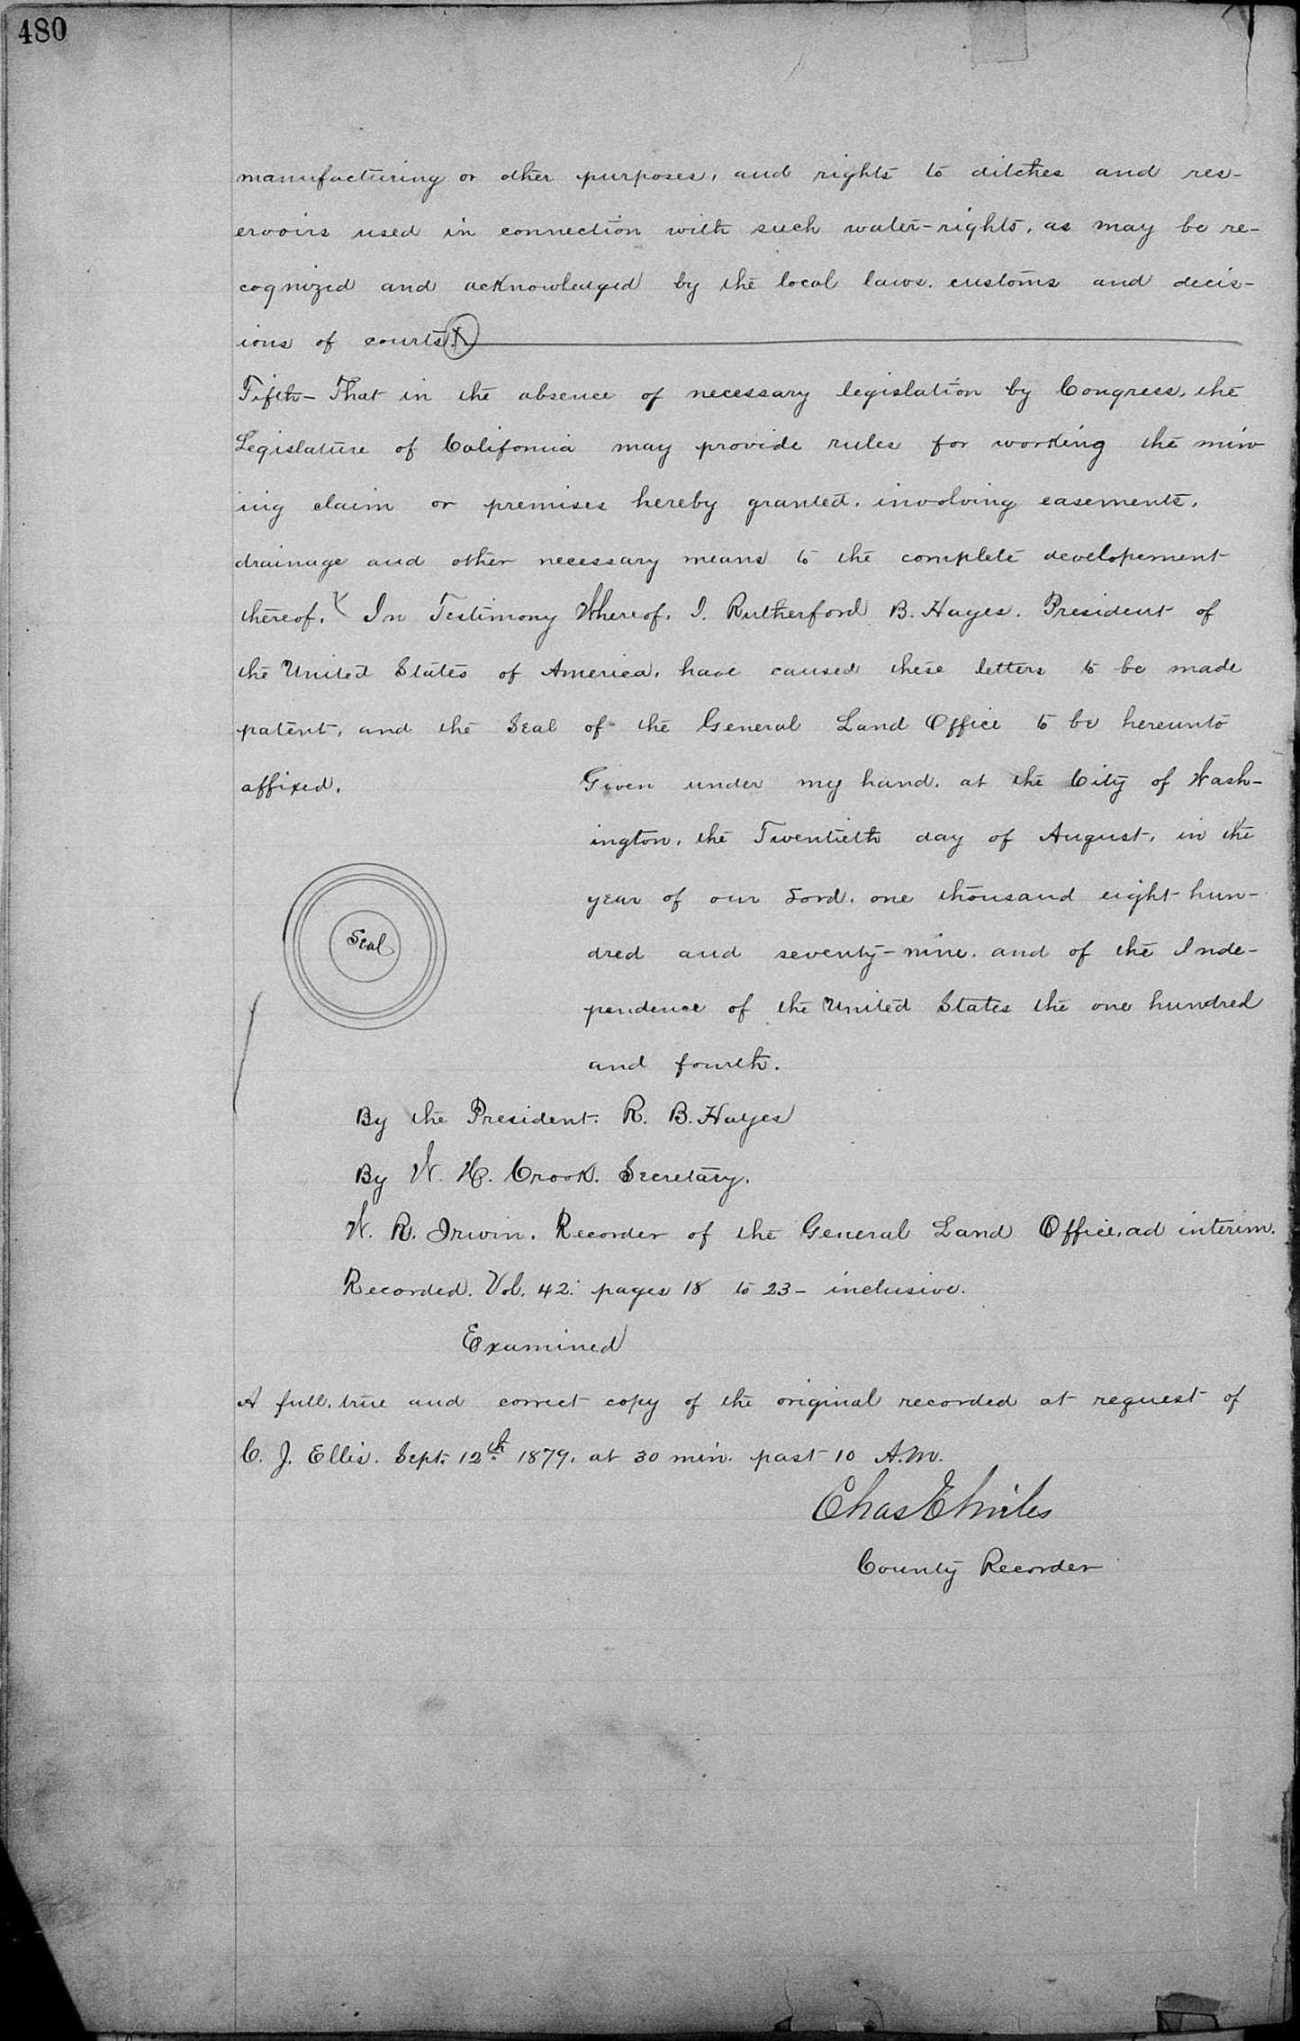 480
manufacturing or other purposes, and rights to ditches and res-
ervoirs used in connection with such water-rights, as may be re-
cognized and acknowledged by the local laws. customs and decis-
ions of courts.
Fifth- That in the absence of necessary legislation by Congress, the
Legislature of California may provide rules for working the min-
ing claim or premises hereby granted. involving easements,
drainage and other necessary means to the complete developement
thereof. In Testimony Whereof. I. Rutherford B. Hayes. President of
the United States of America, have caused these letters to be made
patent, and the Seal of the General Land Office to be hereunto
affixed. Given under my hand. at the City of Wash-
ington, the Twentieth day of August, in the
year of our Lord. one thousand eight hun-
Seal
dred and seventy-nine. and of the Inde-
pendence of the United States the one hundred
and fourth.
By the President. R. B. Hayes
By W. H. Crook. Secretary.
W. R. Irwin. Recorder of the General Land Office, ad interim.
Recorded. Vol. 42. pages 18 to 23- inclusive.
Examined
A full, true and correct copy of the original recorded at request of
C. J. Ellis. Sept. 12th 1879. at 30 min. past 10 A.M.
Chas E Miles
County Recorder